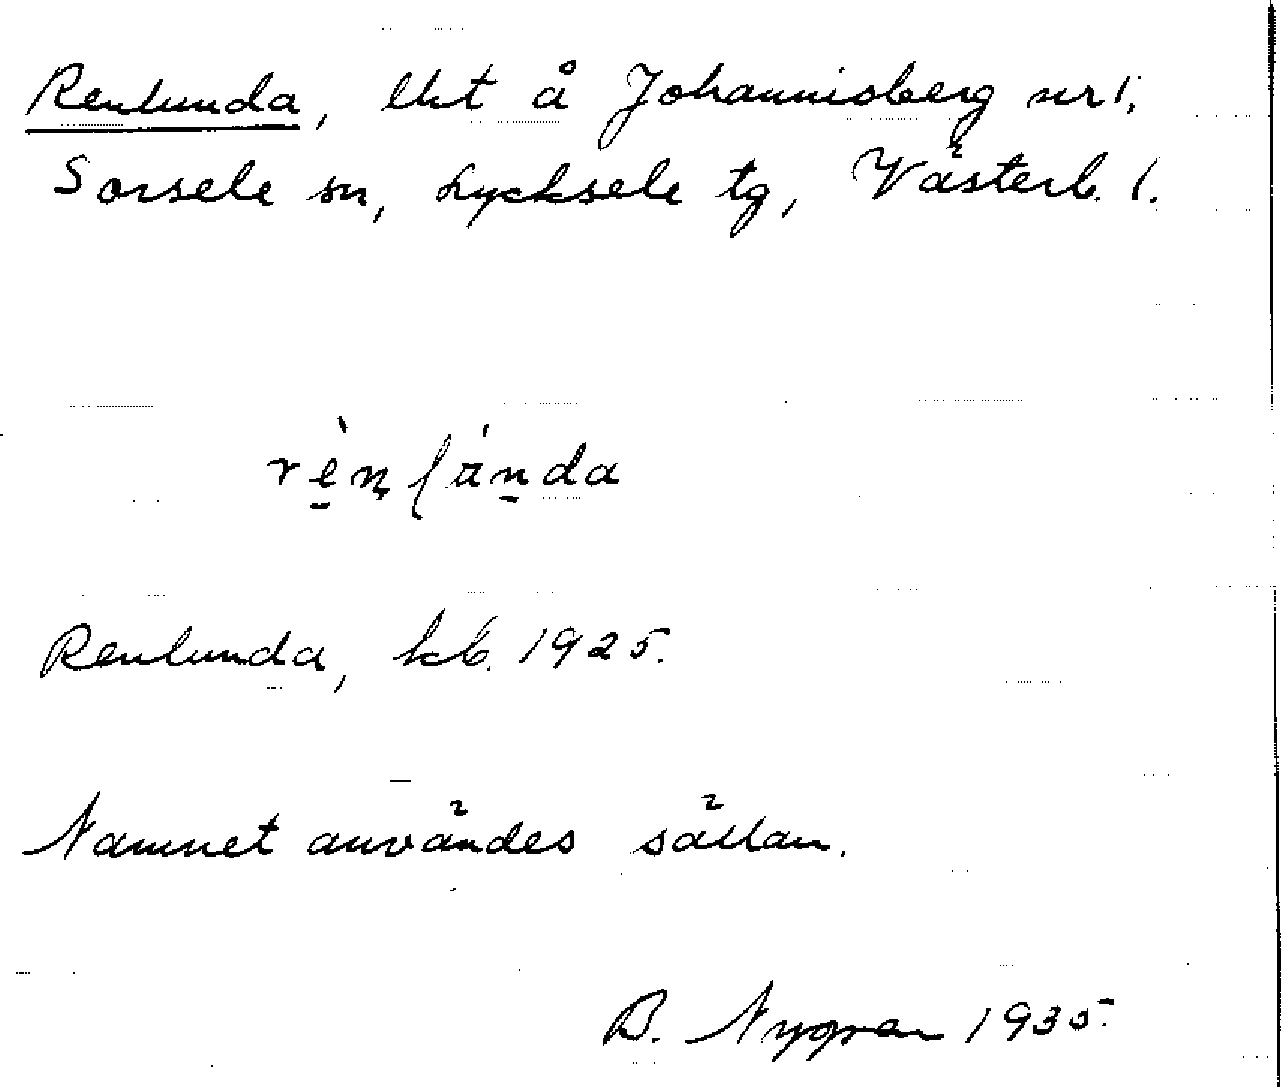 Renlunda, lht å Johannisberg nr 1,
Sorsele sn, Lycksele tg, Västerb. l.
Renlunda, kb. 1925.
Namnet användes sällan.
B. Nygren 1935.